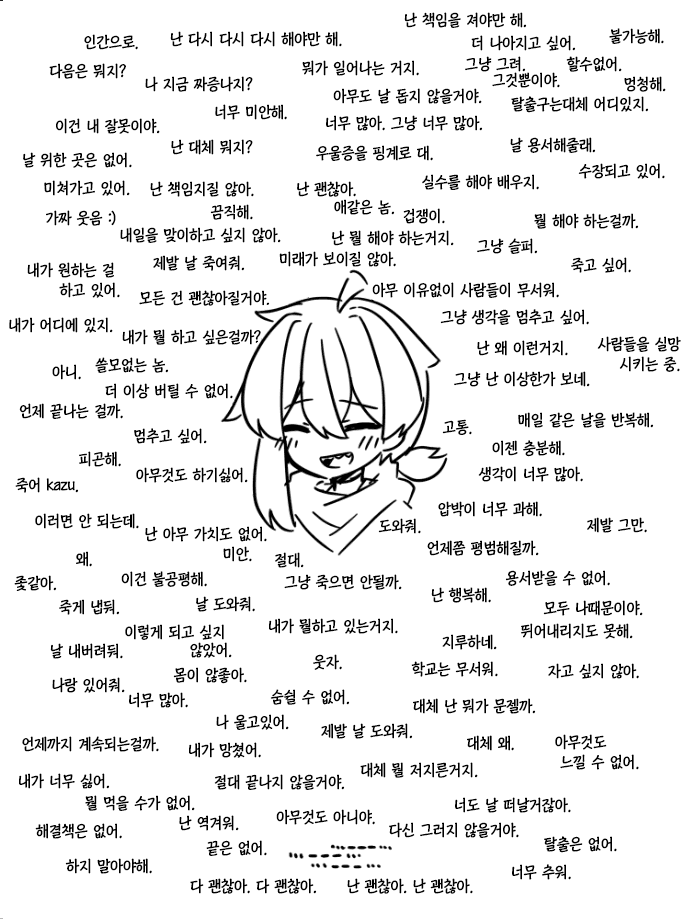 난 책임을 져야만 해.
인간으로.
난 다시 다시 다시 해야만 해.
더 나아지고 싶어.
불가능해.
다음은 뭐지?
나 지금 짜증나지?
뭐가 일어나는 거지.
그냥 그려.
할수없어.
그것뿐이야.
멍청해.
너무 미안해.
아무도 날 돕지 않을거야.
탈출구는대체 어디있지.
이건 내 잘못이야.
너무 많아. 그냥 너무 많아.
난 대체 뭐지?
날 위한 곳은 없어.
우울증을 핑계로 대.
날 용서해줄래.
미쳐가고 있어.
난 책임지질 않아.
난 괜찮아.
실수를 해야 배우지.
수장되고 있어.
가짜 웃음 :)
끔직해.
애같은 놈.
겁쟁이.
뭘 해야 하는걸까.
내일을 맞이하고 싶지 않아.
난 뭘 해야 하는거지.
그냥 슬퍼.
내가 원하는 걸
하고 있어.
제발 날 죽여줘.
미래가 보이질 않아.
죽고 싶어.
모든 건 괜찮아질거야.
아무 이유없이 사람들이 무서워.
내가 어디에 있지.
내가 뭘 하고 싶은걸까?
그냥 생각을 멈추고 싶어.
난 왜 이런거지.
사람들을 실망
시키는 중.
아니.
쓸모없는 놈.
더 이상 버틸 수 없어.
그냥 난 이상한가 보네.
언제 끝나는 걸까.
멈추고 싶어.
고통.
매일 같은 날을 반복해.
이젠 충분해.
피곤해.
죽어 kazu.
아무것도 하기싫어.
생각이 너무 많아.
이러면 안 되는데.
난 아무 가치도 없어.
도와줘.
압박이 너무 과해.
제발 그만.
왜.
미안.
절대.
언제쯤 평범해질까.
좆같아.
이건 불공평해.
그냥 죽으면 안될까.
용서받을 수 없어.
죽게 냅둬.
날 도와줘.
난 행복해.
모두 나때문이야.
이렇게 되고 싶지
않았어.
내가 뭘하고 있는거지.
뛰어내리지도 못해.
날 내버려둬.
지루하네.
나랑 있어줘.
몸이 않좋아.
웃자.
학교는 무서워.
자고 싶지 않아.
너무 많아.
숨쉴 수 없어.
대체 난 뭐가 문젤까.
나 울고있어.
제발 날 도와줘.
언제까지 계속되는걸까.
내가 망쳤어.
대체 왜.
아무것도
느낄 수 없어.
내가 너무 싫어.
절대 끝나지 않을거야.
대체 뭘 저지른거지.
뭘 먹을 수가 없어.
너도 날 떠날거잖아.
해결책은 없어.
난 역겨워.
아무것도 아니야.
다신 그러지 않을거야.
끝은 없어.
탈출은 없어.
하지 말아야해.
너무 추워.
다 괜찮아. 다 괜찮아.
난 괜찮아. 난 괜찮아.